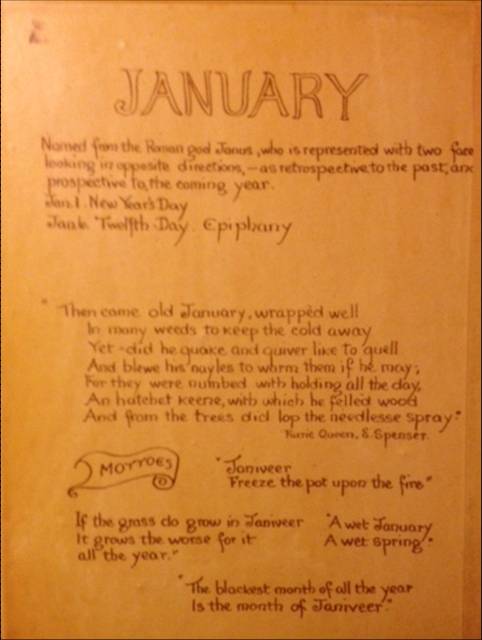 JANUARY
Named from the Roman god Janus, who is represented with two face
looking in opposite directions, — as retrospective to the past, and
prospective to, the coming year.
Jan. 1. New Year's Day
Jan. 6. Twelfth Day. Epiphany
"Then came old January, wrappèd well
In many weeds to keep the cold away
Yet did he quake and quiver like to quell
And blowe his nayles to warm them if he may;
For they were numbed with holding all the day,
An hatchet keene, with which he felled wood
And from the trees did lop the needlesse spray."
Faerie Queen, E. Spenser.
MOTTOES
"Janiveer
Freeze the pot upon the fire"
If the grass do grow in Janiveer
It grows the worse for it
all the year."
"A wet January
A wet spring."
"The blackest month of all the year
Is the month of Janiveer."